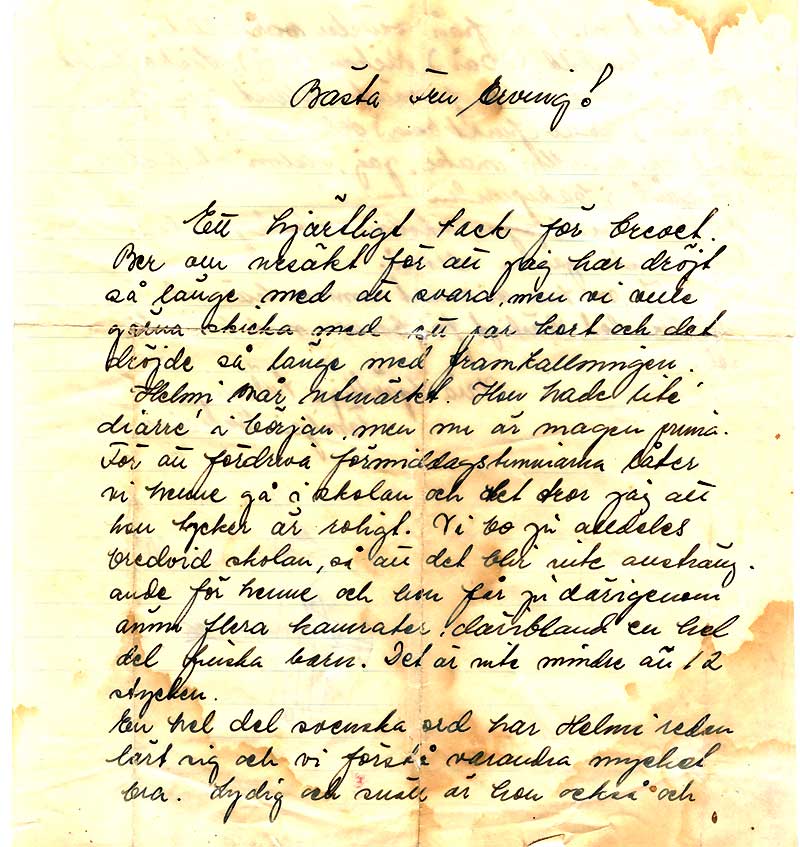 Bästa Fru Erving!
Ett hjärtligt tack för brevet.
Ber om ursäkt för att jag har dröjt
så länge med att svara, men vi ville
gärna skicka med ett par kort och det
dröjde så länge med framkallningen.
Helmi mår utmärkt. Hon hade lite
diarré i början, men nu är magen prima.
För att fördriva förmiddagstimmarna låter
vi henne gå i skolan och det tror jag att
hon tycker är roligt. Vi bo ju alldeles
bredvid skolan, så att det blir inte ansträng-
ande för henne och hon får ju därigenom
ännu flera kamrater, däribland en hel
del finska barn. Det är inte mindre än 12
stycken.
En hel del svenska ord har Helmi redan
lärt sig och vi förstå varandra mycket
bra. Lydig och snäll är hon också och